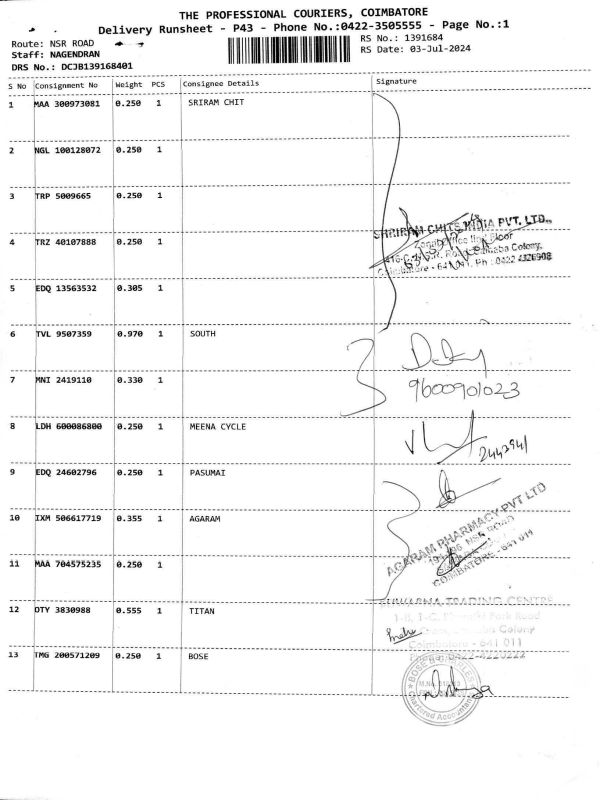 THE PROFESSIONAL COURIERS, COIMBATORE
Delivery Runsheet - P43 - Phone No.:0422-3505555 - Page No.:1
Route: NSR ROAD
RS No.: 1391684
Staff: NAGENDRAN
RS Date: 03-Jul-2024
DRS No.: DCJB139168401
S No Consignment No Weight PCS Consignee Details Signature
1 MAA 300973081 0.250 1 SRIRAM CHIT
2 NGL 100128072 0.250 1
3 TRP 5009665 0.250 1
SHRIRAM CHITS INDIA PVT. LTD.,
4 TRZ 40107888 0.250 1
Floor
Colony,
Coimbatore - 641 011, Ph : 0422 4326908
5 EDQ 13563532 0.305 1
6 TVL 9507359 0.970 1 SOUTH
7 MNI 2419110 0.330 1
9600901023
8 LDH 600086800 0.250 1 MEENA CYCLE
2443941
9 EDQ 24602796 0.250 1 PASUMAI
10 IXM 506617719 0.355 1 AGARAM
AGARAM PHARMACY PVT LTD
NSR ROAD
COIMBATORE - 641 011
11 MAA 704575235 0.250 1
12 OTY 3830988 0.555 1 TITAN
SUWARNA TRADING CENTRE
Park Road
Colony
Coimbatore - 641 011
13 TMG 200571209 0.250 1 BOSE
Chartered Accountants